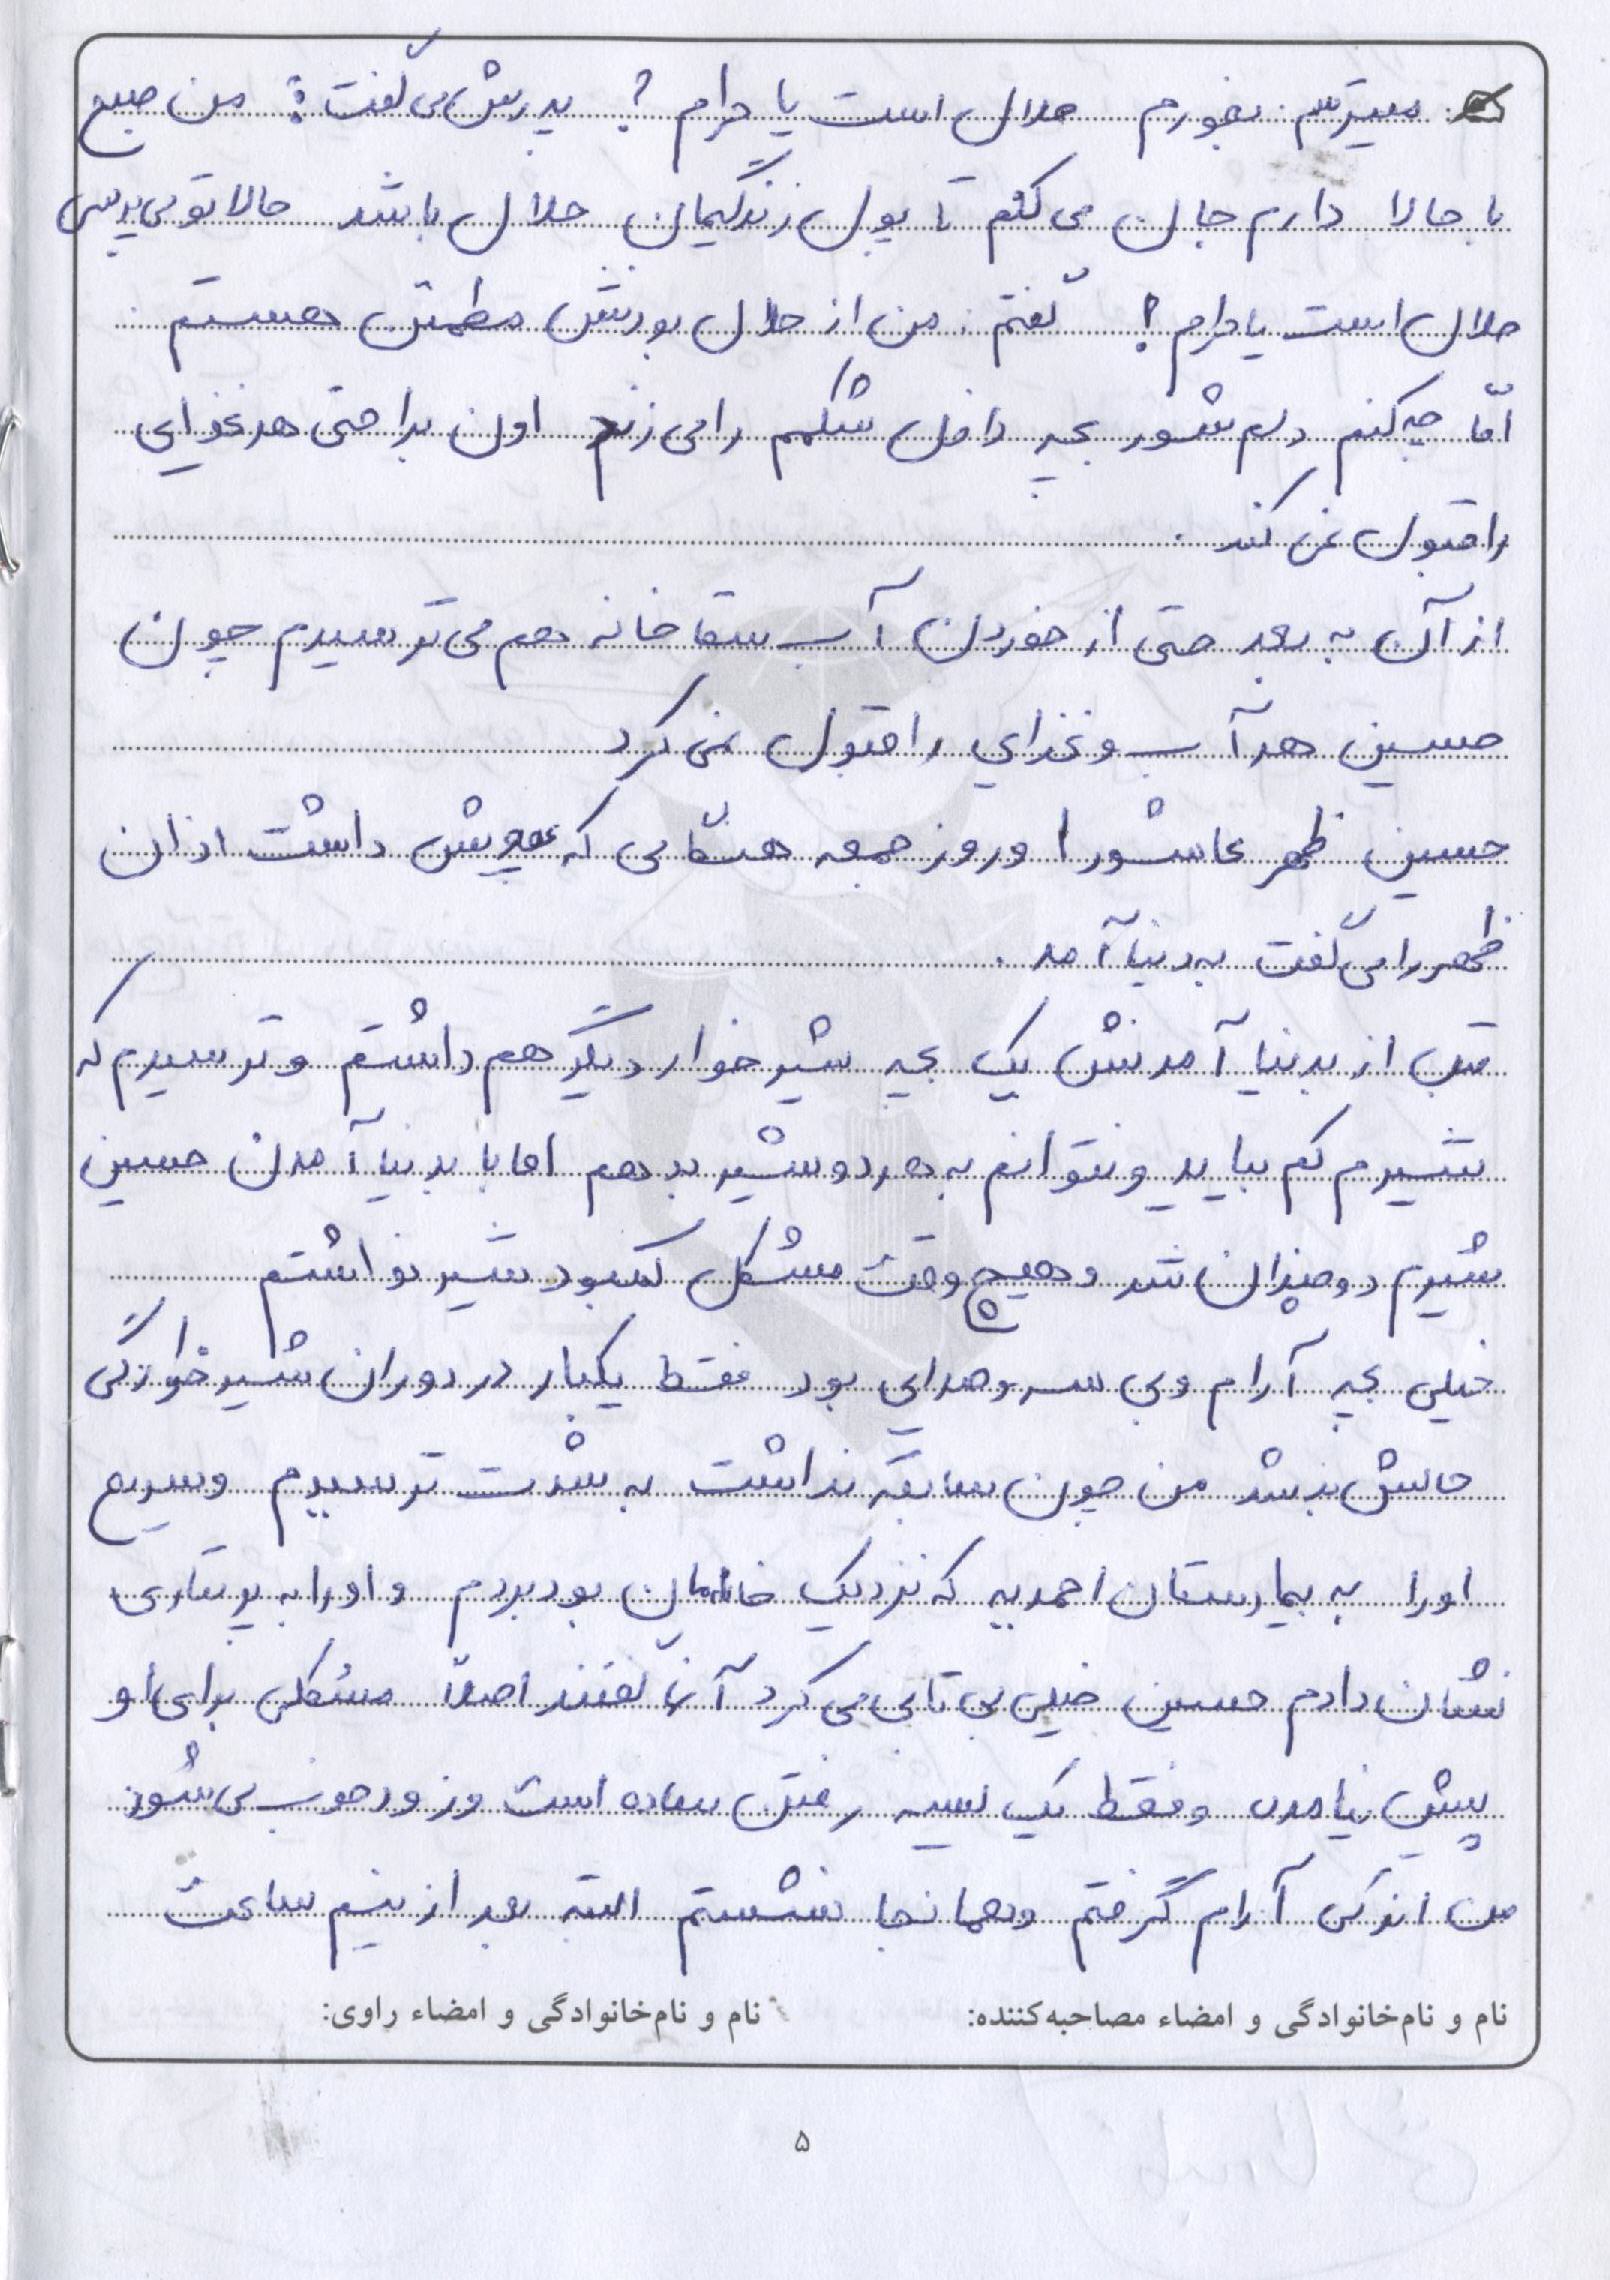 میترسم بخورم حلال است یا حرام؟ پدرش می گفت: من صبح
تا حالا دارم جان می کنم تا پول زندگیمان حلال باشد حالا تو می پرسی
حلال است یا حرام؟ گفتم: من از حلال بودنش مطمئن هستم
امّا چه کنم دلم شور بچه داخل شکمم را می زند اون براحتی هر غذایی
را قبول نمی کند.
از آن به بعد حتی از خوردن آب سقاخانه هم می ترسیدم چون
حسین هر آب و غذایی را قبول نمی کرد
حسین ظهر عاشورا و روز جمعه هنگامی که عمویش داشت اذان
ظهر را می گفت به دنیا آمد.
قبل از بدنیا آمدنش یک بچه شیر خوار دیگر هم داشتم و ترسیدم که
شیرم کم بیاید و نتوانم به هر دو شیر بدهم اما با بدنیا آمدن حسین
شیرم دو چندان شد و هیچ وقت مشکل کمبود شیر نداشتم
خیلی بچه آرام و بی سر و صدایی بود فقط یکبار در دوران شیر خوارگی
حالش بد شد من چون سابقه نداشت به شدت ترسیدم و سریع
او را به بیمارستان احمدیه که نزدیک خانه‌مان بود بردم و او را به پرستاری
نشان دادم حسین خیلی بی تابی می کرد آنها گفتند اصلاً مشکلی برای او
پیش نیامده و فقط یک نسیه رفتن ساده است و زود خوب می شود
من اندکی آرام گرفتم و همانجا نشستم البته بعد از نیم ساعت
نام و نام‌خانوادگی و امضاء مصاحبه‌کننده: نام و نام‌خانوادگی و امضاء راوی:
۵